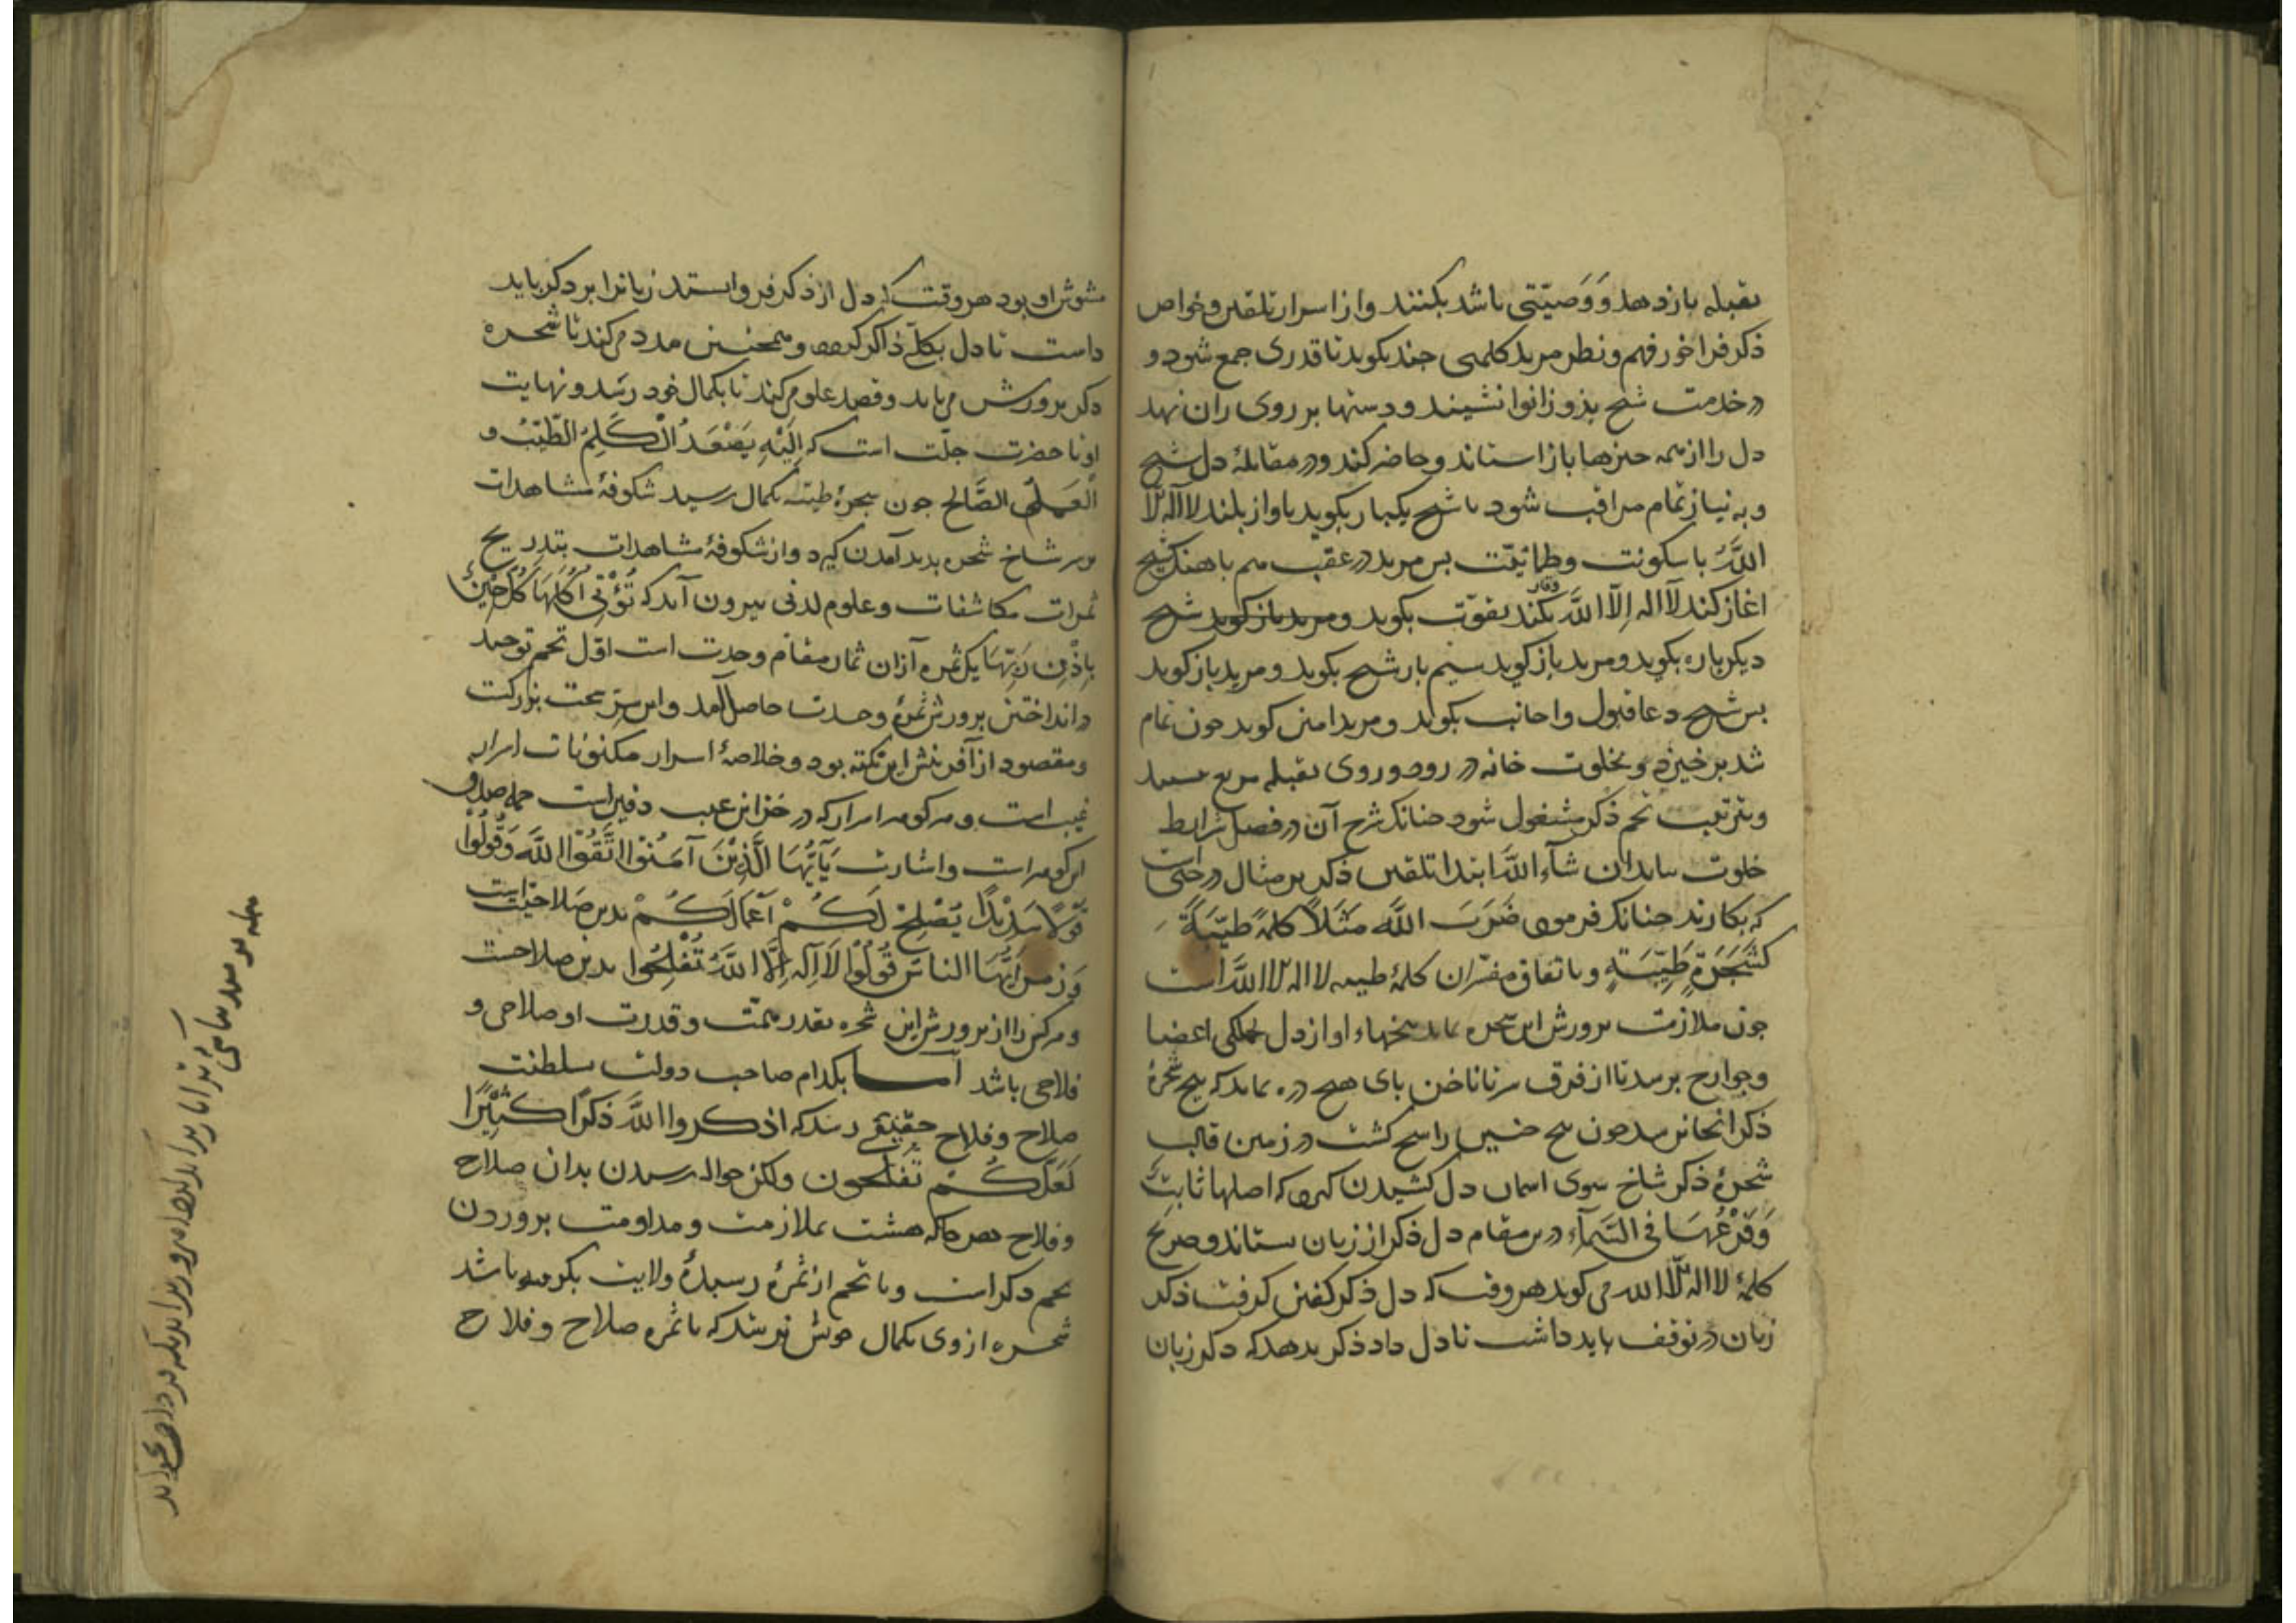 بقبله باز دهد و وَصیّتی باشد بکنند و از اسرار تلقین و خواص
ذکر فراخور فهم و نظر مرید کلمهی چند بکوید تا قدری جمع شود و
در خدمت شیخ بدو زانوا نشیند و دستها بر روی ران نهد
دل را از همه چیزها باز استاند و حاضر کند و در مقابلهٔ دل شیخ
و به نیاز تمام مراقب شود تا شیخ یکبار بکوید باواز بلند لا اله الا
اللّه با سکونت و طمانینت پس مرید در عقب هم باهنک شیخ
اغاز کند لا اله الّا اللّه بکند بقوّت بکوید و مرید باز کوید شیخ
وقار
دیکرباره بکوید و مرید باز کوید سیم بار شیخ بکوید و مرید باز کوید
پس شیخ دعا قبول و اجابت بکوید و مرید امین کوید چون تمام
شد برخیزد و بخلوت خانه در رود و روی بقبله مربع نشیند
و بترتیب تخم ذکر مشغول شود چنانک شرح آن در فصل شرایط
خلوت بیاید ان شآء اللّه ابتدا تلقین ذکر بر مثال درختی است
که بکارند چنانک فرمود ضَرَبَ اللّه مَثَلًا کلمةً طیّبَةً
کَشَجَرَةٍ طَیِّبَةٍ و باتفاق مفسّران کلمهٔ طیبه لا اله الا اللّه است
چون ملازمت پرورش این شجره نماید بیخهاء او از دل بجملکی اعضا
و جوارح برسد تا از فرق سر تا ناخن پای هیچ ذره نماند که بیخ شجرهٔ
ذکر انجا نرسد چون بیخ چنین راسخ کشت در زمین قالب
شجرهٔ ذکر شاخ سوی اسمان دل کشیدن کیرد که اصلها ثابتٌ
وَفَرْعُهَا فی السَّمآءِ درین مقام دل ذکر از زبان بستاند و صریح
کلمهٔ لا اله الّا اللّه می کوید هر وقت که دل ذکر کفتن کرفت ذکر
زبان در توقف باید داشت تا دل داد ذکر بدهد که ذکر زبان
مشوش او بود هر وقت که دل از ذکر فرو ایستد زبانرا بر ذکر باید
داست تا دل بکلّی ذاکر کردد و همچنین مدد می کند تا شجره
ذکر پرورش می یابد و قصد علو می کند تا بکمال خود رسد و نهایت
او تا حضرت جلّت است که اِلَیْهِ یَصْعَدُ الْکَلِمُ الطَّیِّبُ و
الْعَمَلُ الصَّالِح چون شجرهٔ طیبّه بکمال رسید شکوفهٔ مشاهدات
بر سر شاخ شجره پدید آمدن کیرد و از شکوفهٔ مشاهدات بتدریج
ثمرات مکاشفات و علوم لدنی بیرون آید که تُؤْتِی اُکُلَهَا کُلَّ حِینٍ
بِاِذْنِ رَبِّهَا یک ثمره از ان ثمار مقام وحدت است اوّل تخم توحید
در انداختن پرورش ثمرهٔ وحدت حاصل آمد و این سرّ سخت بزرکست
و مقصود از آفرینش این نکته بود و خلاصهٔ اسرار مکنونات اسرار
غیب است و هر کوهر اسرار که در خزاین غیب دفین است جمله صدف
این کوهر است و اشارت یَآ اَیُّهَا الَّذِیْنَ آمَنُوا اتَّقُوا اللَّه وَقُولُوا
قَوْلًا سَدِیْدًا یُصْلِحْ لَکُمْ اَعْمَالَکُمْ بدین صلاحیّت است
وَ رمز اَیُّهَا الناسُ قُولُوا لَا اِلٰهَ اِلَّا اللَّهُ تُفْلِحُوا بدین صلاحت
و هر کس را از پرورش این شجره بقدر همّت و قدرت او صلاحی و
فلاحی باشد اما بکدام صاحب دولت سلطنت
صلاح و فلاح حقیقی رسد که اذکروا اللَّه ذکرًا کثیرًا
لَعَلَّکُمْ تُفْلِحُون ولکن حواله رسیدن بدان صلاح
و فلاح هر جا که هست بملازمت و مداومت پروردن
تخم ذکر است و تا تخم از ثمرهٔ رسیدهٔ ولایت بکرفته باشد
شجره از وی بکمال خویش نرسد که تا ثمره صلاح و فلاح